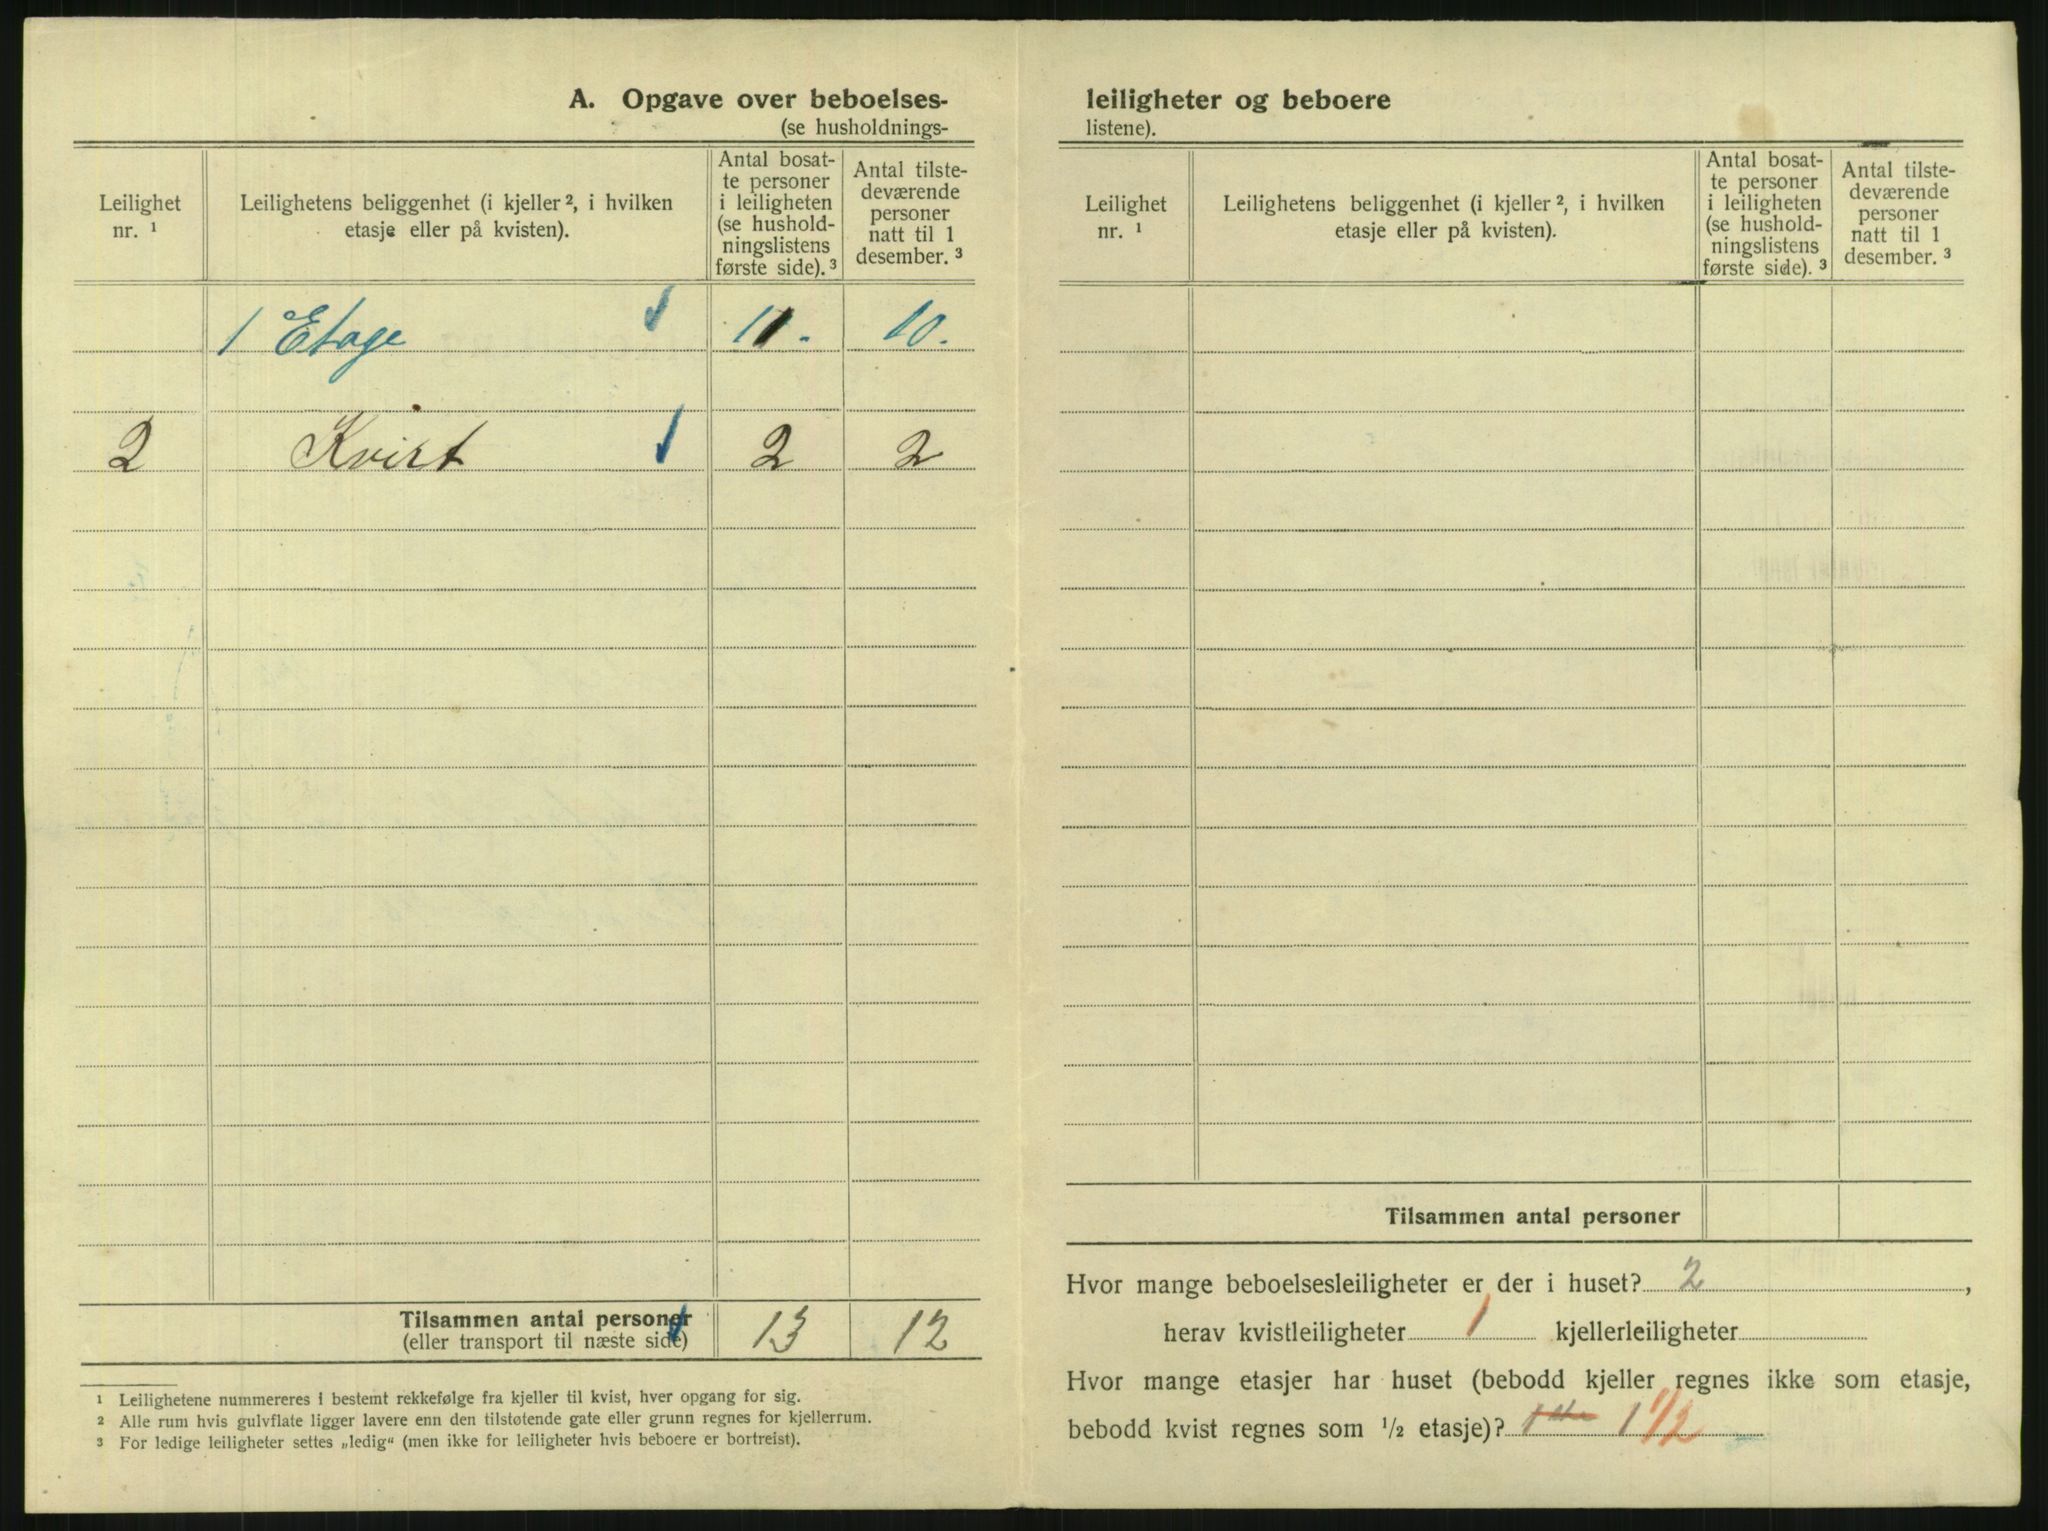 A. Opgave over beboelses-
(se husholdnings-
Leilighet
nr. ¹
Leilighetens beliggenhet (i kjeller ², i hvilken
etasje eller på kvisten).
Antal bosat-
te personer
i leiligheten
(se hushold-
ningslistens
første side). ³
Antal tilste-
deværende
personer
natt til 1
desember. ³
1 Etage 11. 10.
2 Kvist 2 2
Tilsammen antal personer
(eller transport til næste side)
13 12
¹ Leilighetene nummereres i bestemt rekkefølge fra kjeller til kvist, hver opgang for sig.
² Alle rum hvis gulvflate ligger lavere enn den tilstøtende gate eller grunn regnes for kjellerrum.
³ For ledige leiligheter settes „ledig“ (men ikke for leiligheter hvis beboere er bortreist).
leiligheter og beboere
listene).
Leilighet
nr. ¹
Leilighetens beliggenhet (i kjeller ², i hvilken
etasje eller på kvisten).
Antal bosat-
te personer
i leiligheten
(se hushold-
ningslistens
første side). ³
Antal tilste-
deværende
personer
natt til 1
desember. ³
Tilsammen antal personer
Hvor mange beboelsesleiligheter er der i huset? 2 ,
herav kvistleiligheter 1 kjellerleiligheter
Hvor mange etasjer har huset (bebodd kjeller regnes ikke som etasje,
bebodd kvist regnes som ¹/₂ etasje)? 1 1/2